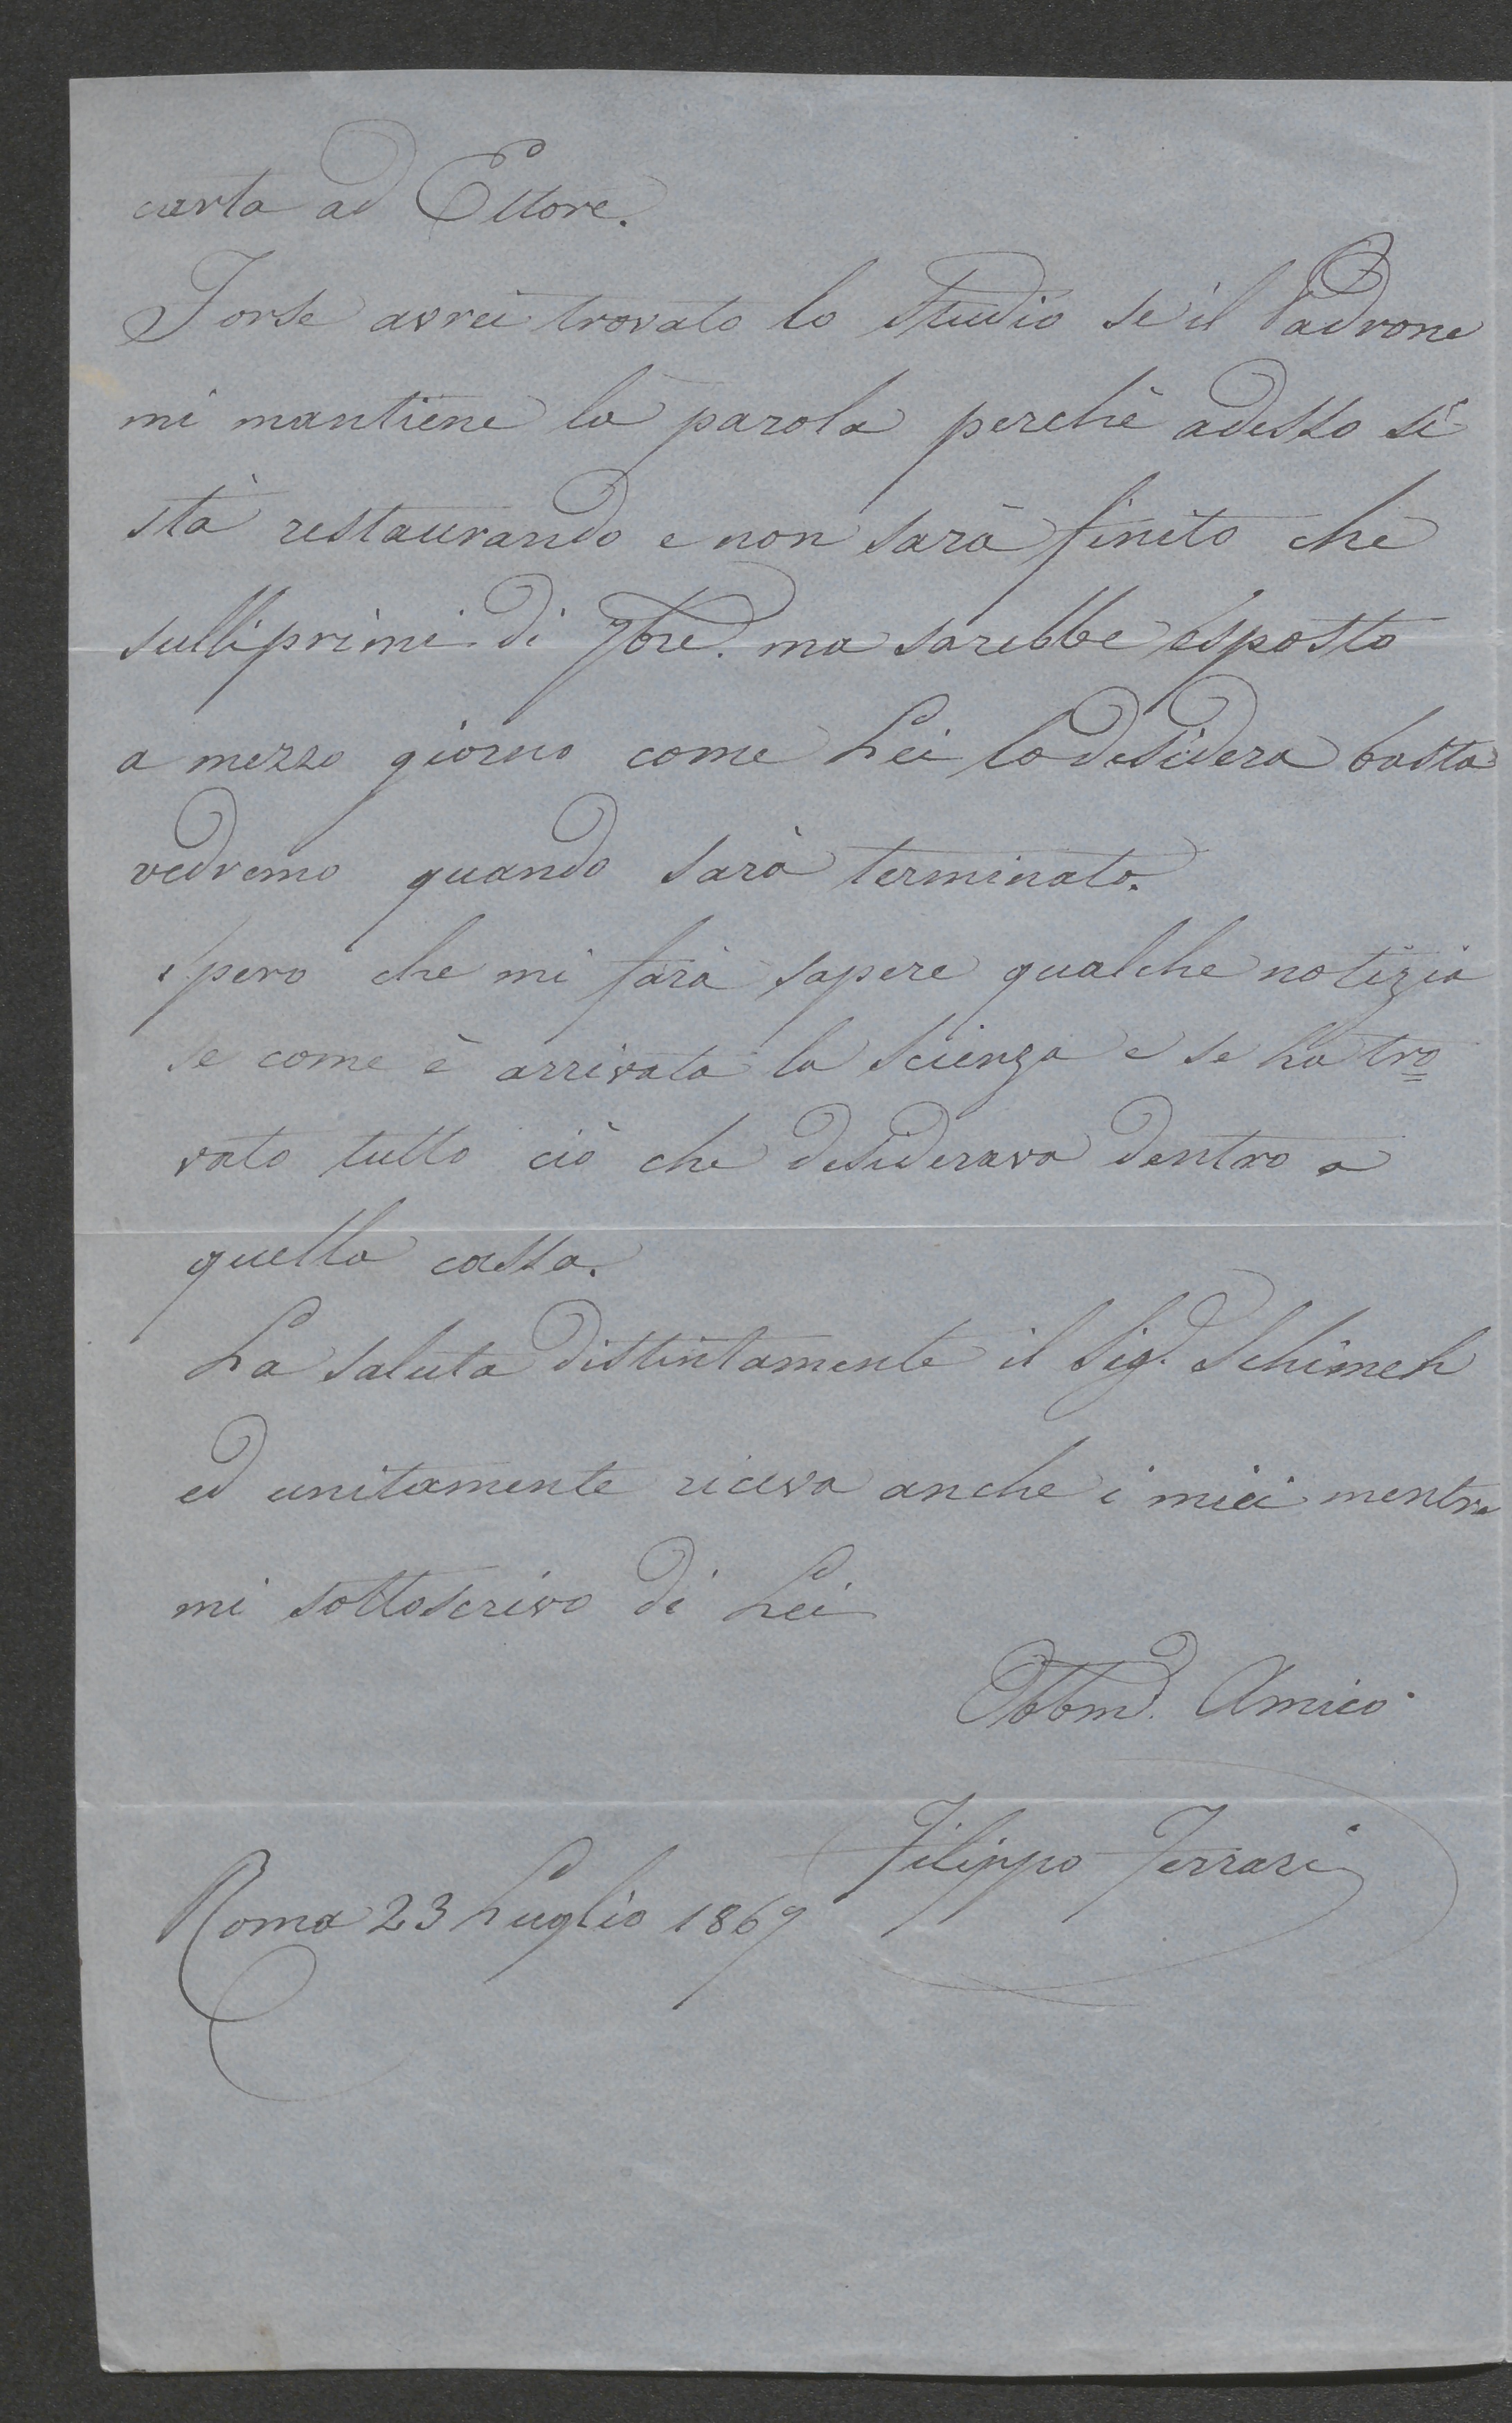 carta ad Ettore.
Forse avrei trovato lo Studio se il Padrone
mi mantiene la parola perchè adesso si
stà restaurando e non sarà finito che
sulli primi di 7bre. ma sarebbe esposto
a mezzo giorno come Lei lo desidera basta
vedremo quando sarà terminato.
Spero che mi farà sapere qualche notizia
se come è arrivata la Scienza e se ha tro=
vato tutto ciò che desiderava dentro a
quella cassa.
La saluta distintamente il Sig.
ed unitamente riceva anche i miei mentre
mi sottoscrivo di Lei
Obbmo. Amico
Filippo Ferrari
Roma 23 Luglio 1869